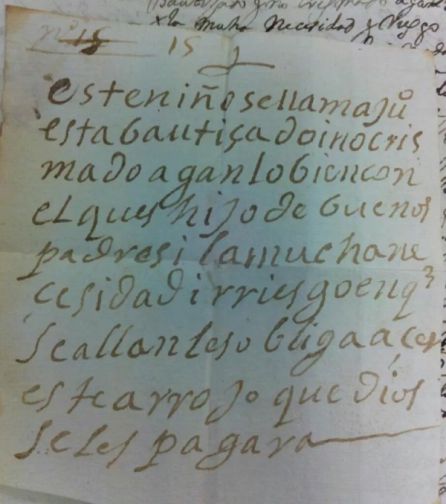 mucha Necesidad y Riesgo
nº 15 15
este niño se llama juº
esta bautiçado i no cris
mado agan lo bien con
el ques hijo de buenos
padres i la mucha ne
cesidad i rriesgo en q^e
se allan les obliga açer
este arrojo que dios
se les pagara